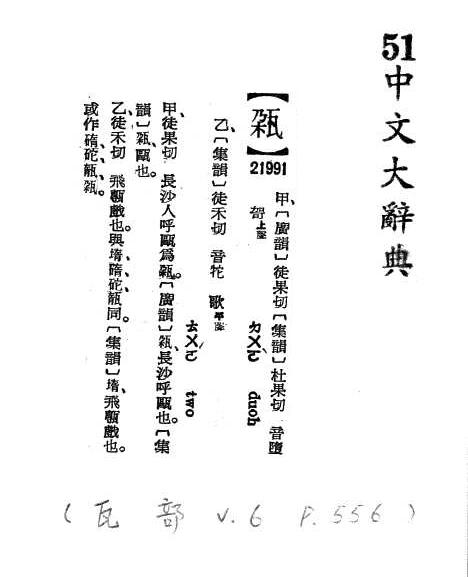 51中文大辭典
【㼠】
21991
甲、〔廣韻〕徒果切〔集韻〕杜果切 音墮
哿上聲 ㄉㄨㄛˋ duoh
乙、〔集韻〕徒禾切 音牠 歌平聲
ㄊㄨㄛˊ two
甲、徒果切 長沙人呼甌爲㼠。〔廣韻〕㼠、長沙呼甌也。〔集
韻〕㼠、甌也。
乙、徒禾切 飛甎戲也。與墮碢砣㼠同。〔集韻〕墮、飛甎戲也。
或作碢、砣、㼠、㼠。
(瓦 部 v.6 P.556)